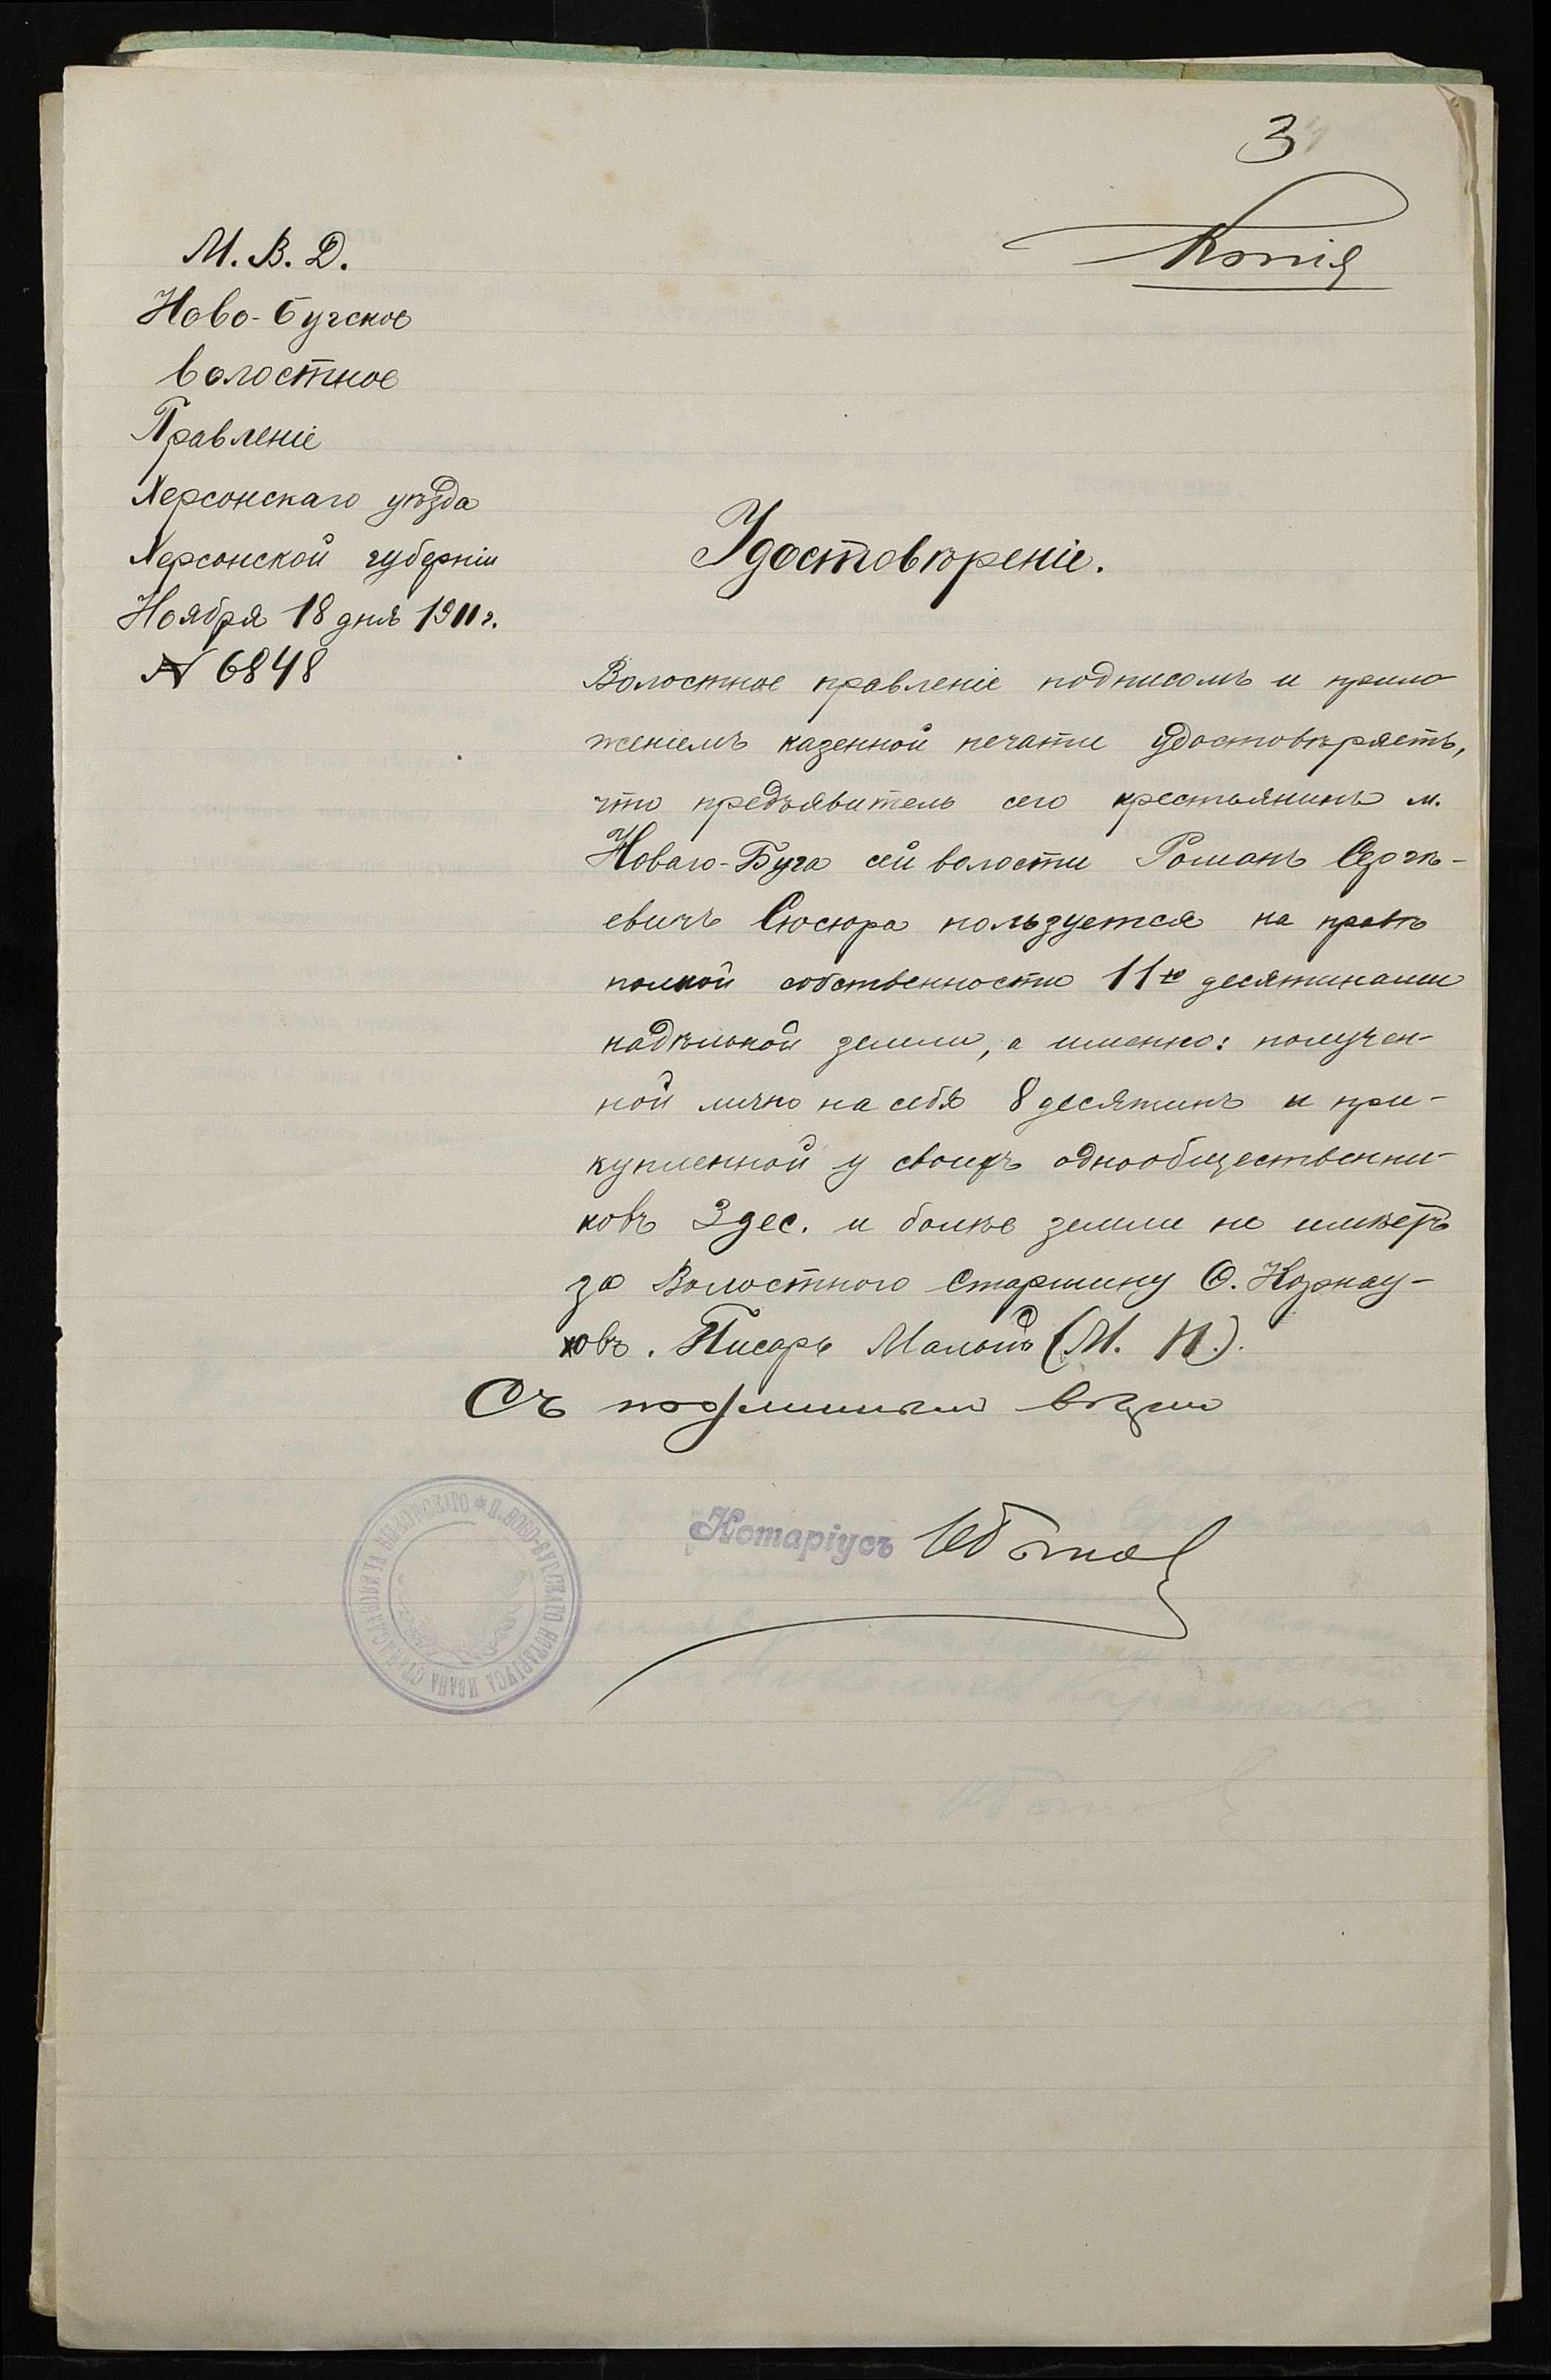 3
Копія
М. В. Д.
Ново-Бугское
волостное
Правленіе
Херсонскаго уѣзда
Херсонской губерніи
Ноября 18 дня 1911 г.
№ 6848
Удостовѣреніе.
Волостное правленіе подписомъ и прило
женіемъ казенной печати удостовѣряетъ,
что предъявитель сего крестьянинъ м.
Новаго-Буга сей волости Романъ Сергѣ-
евичъ Сюсюра пользуется на правѣ
полной собственности 11ю десятинами
надѣльной земли, а именно: получен-
ной лично на себя 8 десятинъ и при-
купленной у своихъ однообщественни-
ковъ 3 дес. и болѣе земли не имѣетъ
за Волостного Старшину О. Карнау-
ховъ. Писарь (М. П.).
Съ подлиннымъ вѣрно
Нотаріусъ
П. НОВО-БУГСКАГО НОТАРІУСА ИВАНА СТАНИСЛАВОВИЧА